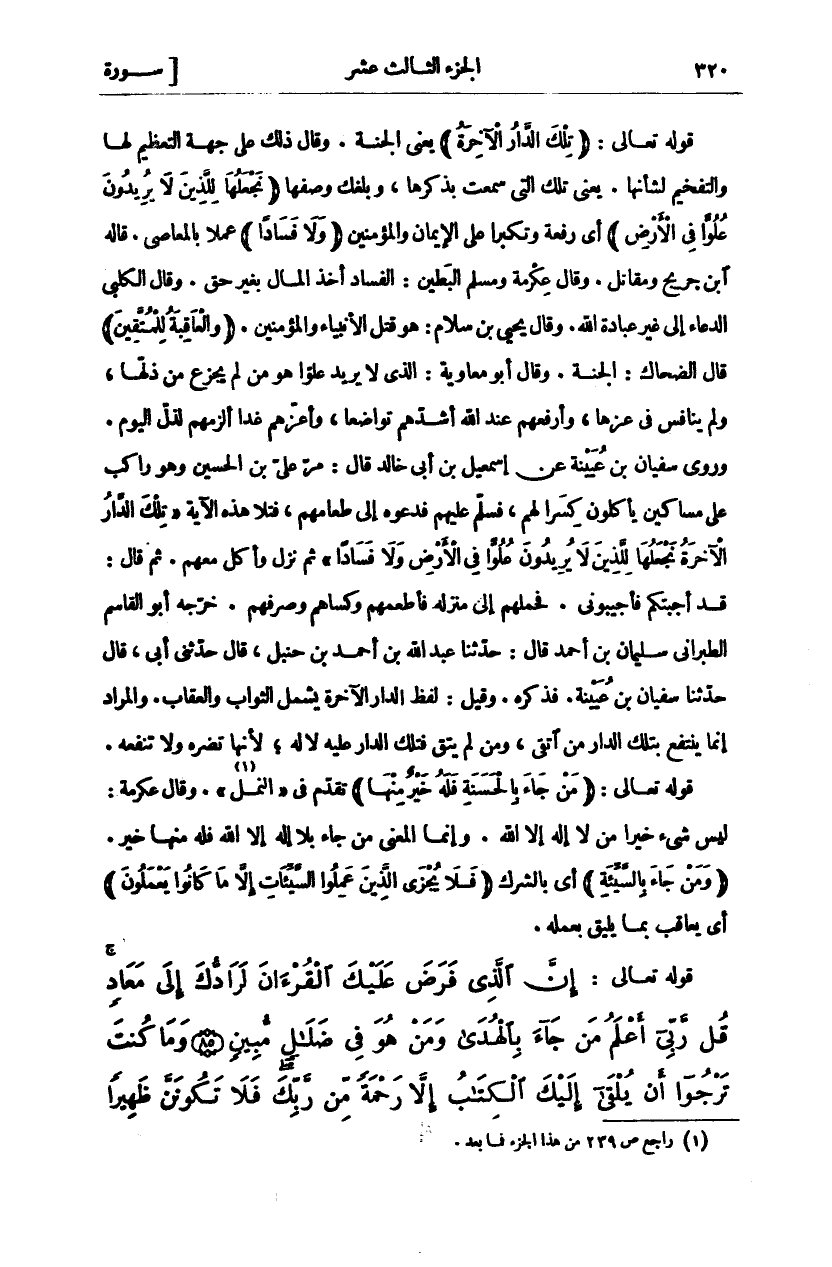 ٣٢٠ الجزء الثالث عشر [ سورة
قوله تعالى : ﴿ تِلْكَ الدَّارُ الْآخِرَةُ ﴾ يعنى الجنة . وقال ذلك على جهة التعظيم لها
والتفخيم لشأنها . يعنى تلك التى سمعت بذكرها ، وبلغك وصفها ﴿ نَجْعَلُهَا لِلَّذِينَ لَا يُرِيدُونَ
عُلُوًّا فِى الْأَرْضِ ﴾ أى رفعة وتكبرا على الإيمان والمؤمنين ﴿ وَلَا فَسَادًا ﴾ عملا بالمعاصى . قاله
آبن جريج ومقاتل . وقال عِكْرمة ومسلم البَطين : الفساد أخذ المال بغير حق . وقال الكلبى
الدعاء إلى غير عبادة الله. وقال يحيى بن سلام: هو قتل الأنبياء والمؤمنين . ﴿ والْعَاقِبَةُ لِلْمُتَّقِينَ﴾
قال الضحاك : الجنة . وقال أبو معاوية : الذى لا يريد علوّا هو من لم يجزع من ذلّها ،
ولم ينافس فى عزها ، وأرفعهم عند الله أشدّهم تواضعا ، وأعزّهم غدا ألزمهم لذلّ اليوم .
وروى سفيان بن عُيَيْنة عن إسمعيل بن أبى خالد قال : مرّ علىّ بن الحسين وهو راكب
على مساكين يأكلون كِسَرا لهم ، فسلّم عليهم فدعوه إلى طعامهم ، فتلا هذه الآية « تِلْكَ الدَّارُ
الْآخِرَةُ نَجْعَلُهَا لِلَّذِينَ لَا يُرِيدُونَ عُلُوًّا فِى الْأَرْضِ وَلَا فَسَادًا » ثم نزل وأكل معهم . ثم قال :
قد أجبتكم فأجيبونى . فحملهم إلى منزله فأطعمهم وكساهم وصرفهم . خرّجه أبو القاسم
الطبرانى سليمان بن أحمد قال : حدّثنا عبد الله بن أحمد بن حنبل ، قال حدّثنى أبى ، قال
حدّثنا سفيان بن عُيَيْنة. فذكره . وقيل : لفظ الدار الآخرة يشمل الثواب والعقاب. والمراد
إنما ينتفع بتلك الدار من آتقى ، ومن لم يتق فتلك الدار عليه لا له ؛ لأنها تضره ولا تنفعه .
قوله تعالى : ﴿ مَنْ جَاءَ بِالْحَسَنَةِ فَلَهُ خَيْرٌ مِنْهَا ﴾ تقدّم فى « النمل (١) » . وقال عكرمة :
ليس شىء خيرا من لا إله إلا الله . وإنما المعنى من جاء بلا إله إلا الله فله منها خير .
﴿ وَمَنْ جَاءَ بِالسَّيِّئَةِ ﴾ أى بالشرك ﴿ فَلَا يُجْزَى الَّذِينَ عَمِلُوا السَّيِّئَاتِ إِلَّا مَا كَانُوا يَعْمَلُونَ ﴾
أى يعاقب بما يليق بعمله .
قوله تعالى : إِنَّ ٱلَّذِى فَرَضَ عَلَيْكَ ٱلْقُرْءَانَ لَرَآدُّكَ إِلَىٰ مَعَادٍ ۚ
قُل رَّبِّىٓ أَعْلَمُ مَن جَآءَ بِٱلْهُدَىٰ وَمَنْ هُوَ فِى ضَلَٰلٍ مُّبِينٍ ﴿٨٥﴾ وَمَا كُنتَ
تَرْجُوٓا۟ أَن يُلْقَىٰٓ إِلَيْكَ ٱلْكِتَٰبُ إِلَّا رَحْمَةً مِّن رَّبِّكَ ۖ فَلَا تَكُونَنَّ ظَهِيرًا
(١) راجع ص ٢٣٩ من هذا الجزء فما بعد .